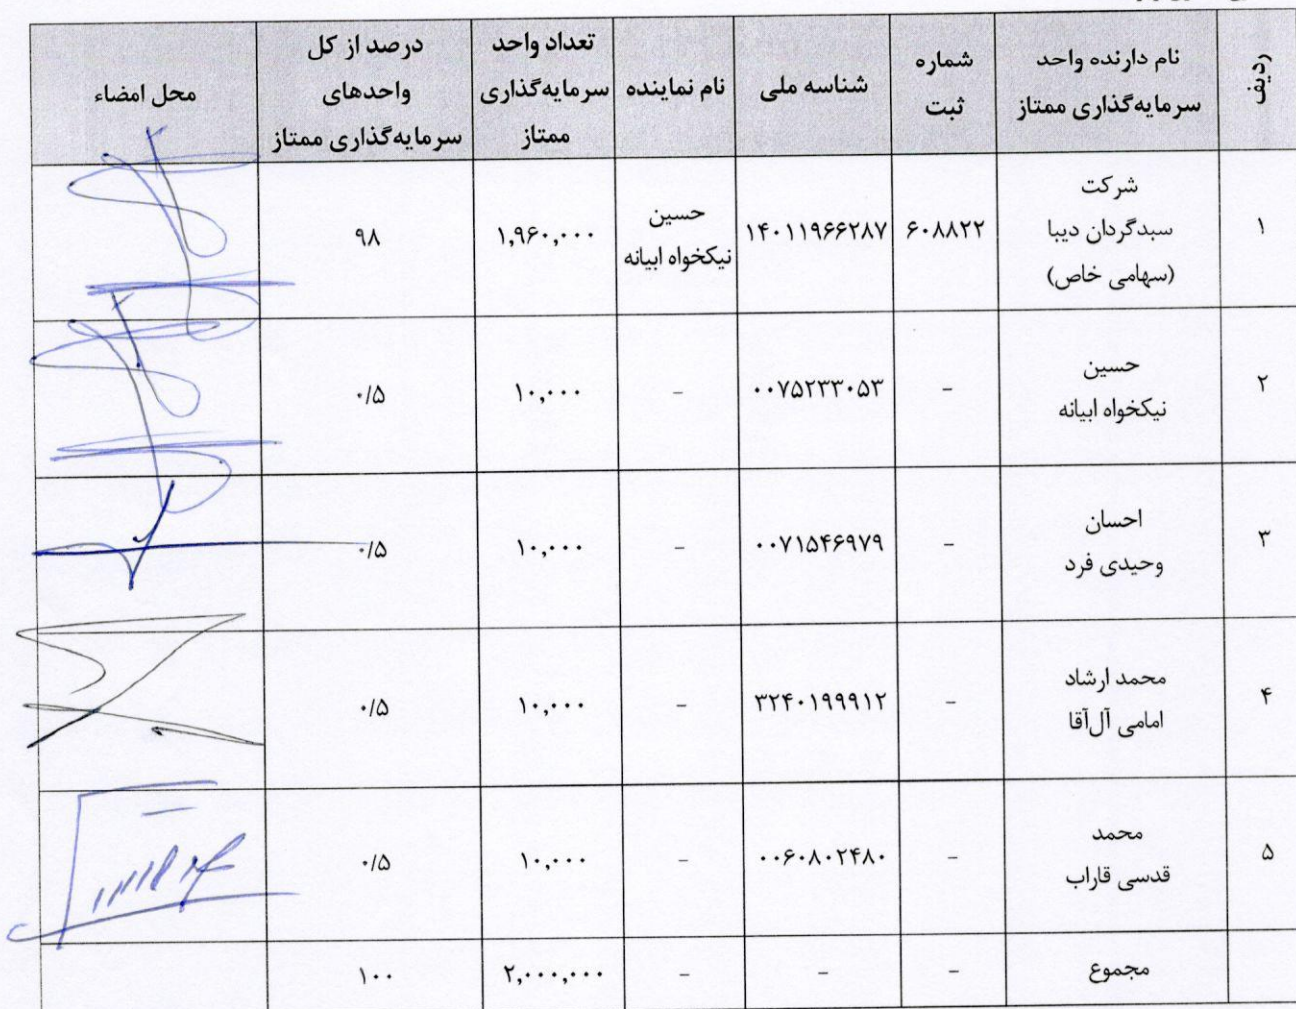 ردیف
نام دارنده واحد
سرمایه‌گذاری ممتاز
شماره
ثبت
شناسه ملی
نام نماینده
تعداد واحد
سرمایه‌گذاری
ممتاز
درصد از کل
واحدهای
سرمایه‌گذاری ممتاز
محل امضاء
۱
شرکت
سبدگردان دیبا
(سهامی خاص)
۶۰۸۸۲۲
۱۴۰۱۱۹۶۶۲۸۷
حسین
نیکخواه ابیانه
۱,۹۶۰,۰۰۰
۹۸
۲
حسین
نیکخواه ابیانه
–
۰۰۷۵۲۳۳۰۵۳
–
۱۰,۰۰۰
۰/۵
۳
احسان
وحیدی فرد
–
۰۰۷۱۵۴۶۹۷۹
–
۱۰,۰۰۰
۰/۵
۴
محمد ارشاد
امامی آل‌آقا
–
۳۲۴۰۱۹۹۹۱۲
–
۱۰,۰۰۰
۰/۵
۵
محمد
قدسی قاراب
–
۰۰۶۰۸۰۲۴۸۰
–
۱۰,۰۰۰
۰/۵
مجموع
–
–
–
۲,۰۰۰,۰۰۰
۱۰۰